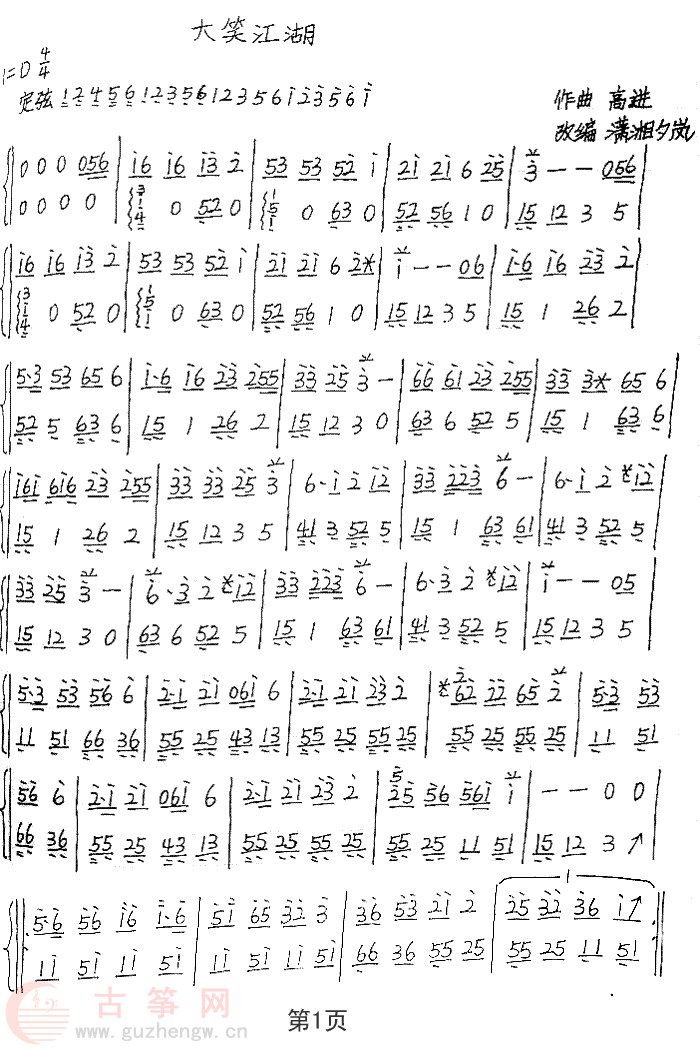 大笑江湖
1=D 4/4
定弦 1 2 4 5 6 1 2 3 5 6 1 2 3 5 6 1 2 3 5 6 1
作曲 高进
改编 潇湘夕岚
0 0 0 056 | i6 i6 i3 2 | 53 53 52 i | 2i 2i 6 25 | 3 - - 056
0 0 0 0 | 314 0 52 0 | 151 0 63 0 | 52 56 1 0 | 15 12 3 5
i6 i6 i3 2 | 53 53 52 i | 2i 2i 6 2* | i - - 06 | i·6 i6 23 2
314 0 52 0 | 151 0 63 0 | 52 56 1 0 | 15 12 3 5 | 15 1 26 2
5·3 53 65 6 | i·6 i6 23 255 | 33 25 3 - | 66 61 23 255 | 33 3* 65 6
52 5 63 6 | 15 1 26 2 | 15 12 3 0 | 63 6 52 5 | 15 1 63 6
i6i 6i6 23 255 | 33 33 25 3 | 6· i 2 i2 | 33 223 6 - | 6· i 2 *i2
15 1 26 2 | 15 12 3 5 | 41 3 52 5 | 15 1 63 61 | 41 3 52 5
33 25 3 - | 6· 3 2 *i2 | 33 223 6 - | 6· 3 2 *i2 | i - - 05
15 12 3 0 | 63 6 52 5 | 15 1 63 61 | 41 3 52 5 | 15 12 3 5
5·3 53 56 6 | 2·i 2i 06i 6 | 2·i 2i 23 2 | *62 22 65 2 | 5·3 53
11 51 66 36 | 55 25 43 13 | 55 25 55 25 | 55 25 55 25 | 11 51
56 6 | 2·i 2i 06i 6 | 2·i 2i 23 2 | 25 56 56i i | - - 0 0
66 36 | 55 25 43 13 | 55 25 55 25 | 55 25 11 51 | 15 12 3 ↗
5·6 56 i6 i·6 | 5i 65 32 3 | 36 53 2i 2 | 25 32 36 i↗
1i 5i 1i 5i | 1i 5i 1i 5i | 66 36 55 25 | 55 25 11 51
古筝网
www.guzhengw.cn
第1页